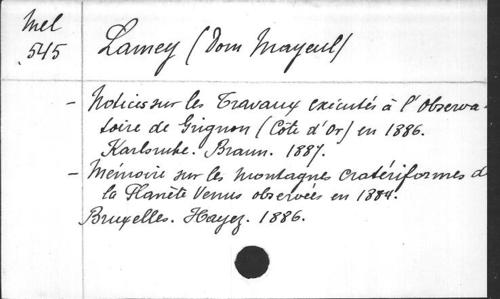 Mel
545
Lamey (Dom Mayeul)
- Notices sur les Travaux exécutés à l'Observa-
toire de Grignon (Côte d'Or) en 1886.
Karlsruhe. Braun. 1887.
- Mémoire sur les montagnes cratériformes d
la Planète Venus observées en 1884.
Bruxelles. Hayez. 1886.